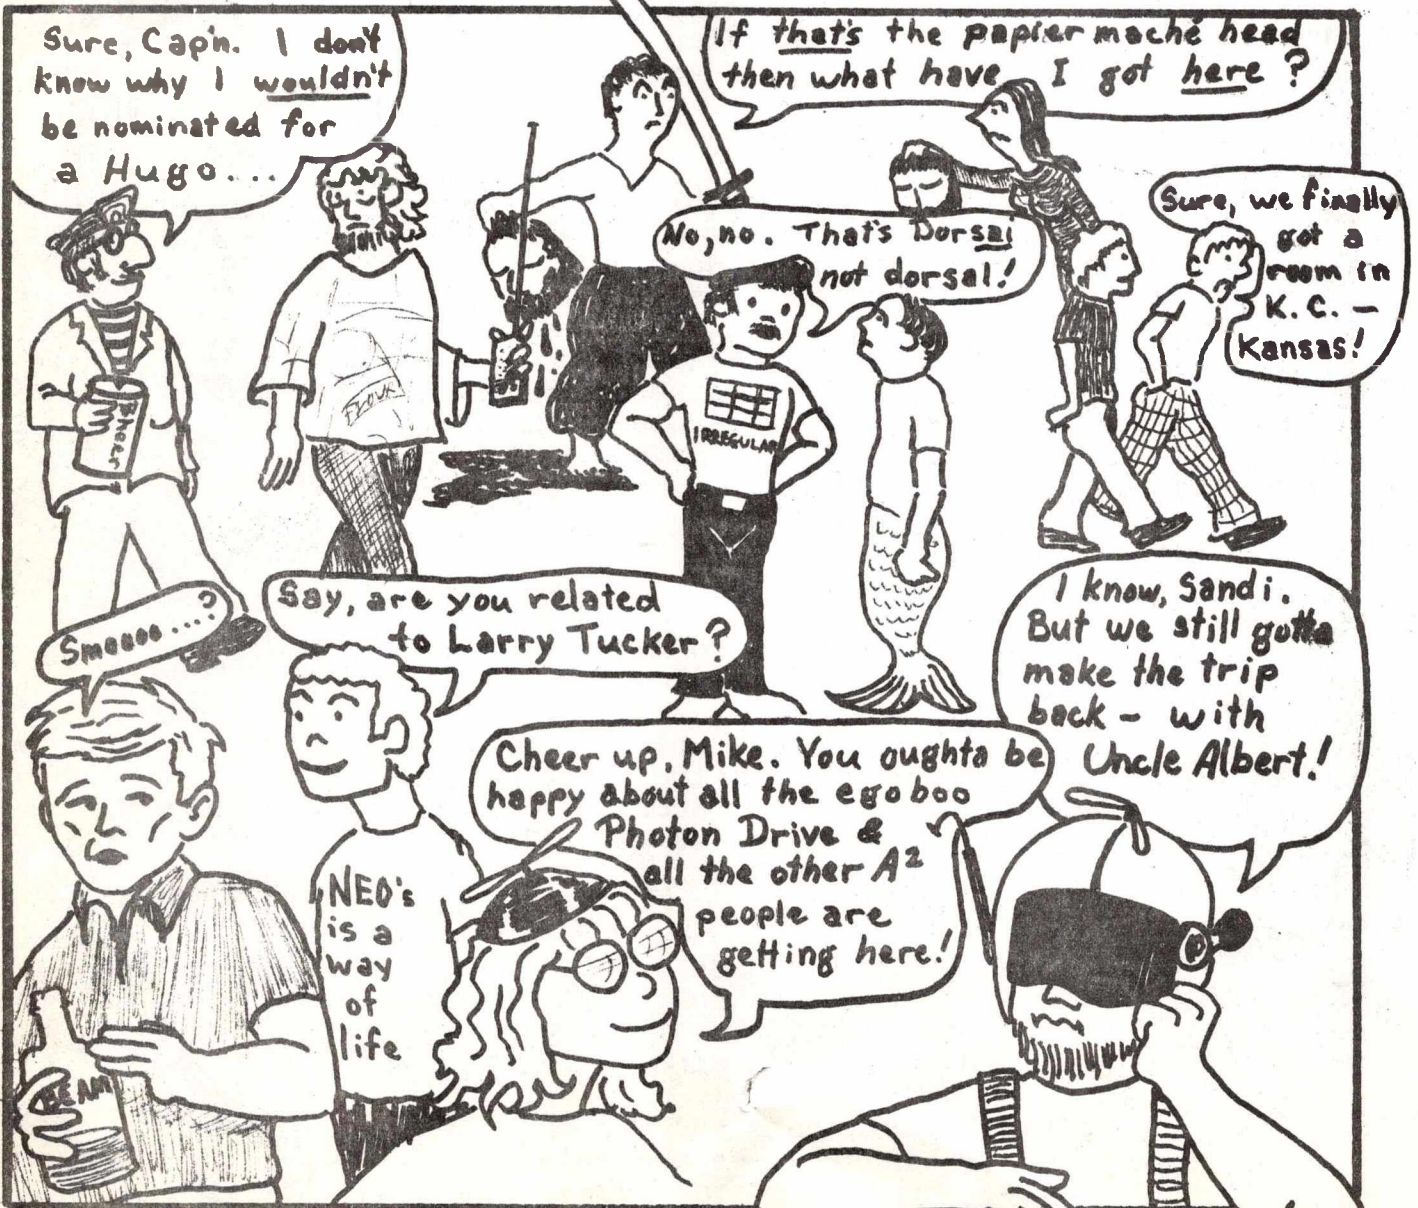 Sure, Cap'n. I don't
know why I wouldn't
be nominated for
a Hugo...
If that's the papier maché head
then what have I got here?
No, no. That's Dorsai
not dorsal!
Sure, we finally
got a
room in
K.C. —
Kansas!
Bheer
FLOUR
IRREGULAR
Smoooo...?
Say, are you related
to Larry Tucker?
I know, Sandi.
But we still gotta
make the trip
back — with
Uncle Albert!
Cheer up, Mike. You oughta be
happy about all the egoboo
Photon Drive &
all the other A²
people are
getting here!
NEO's
is a
way
of
life
BEAM